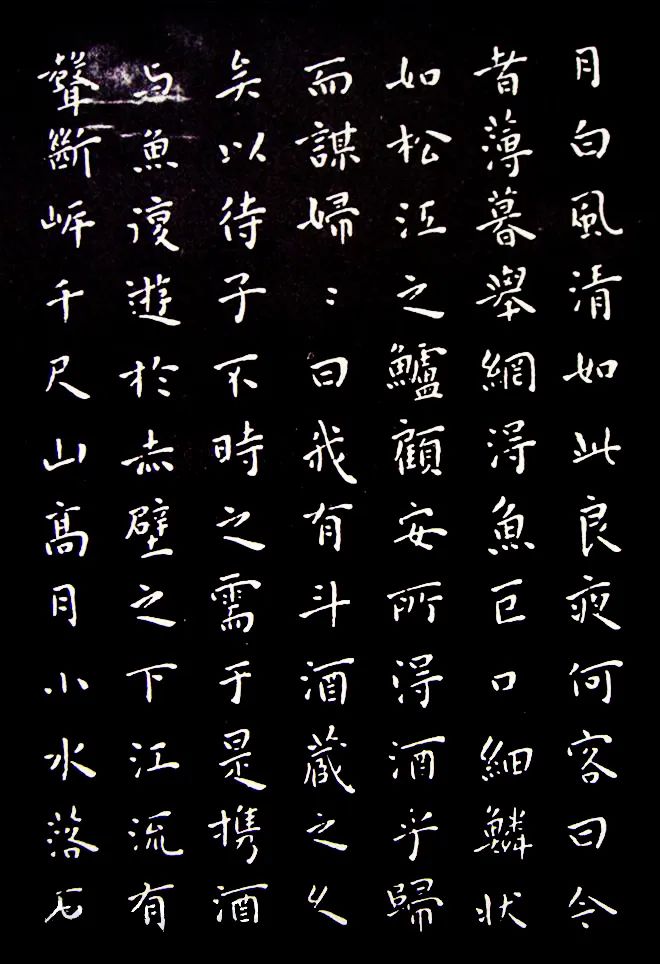 月白風清如此良夜何客曰今
者薄暮舉網得魚巨口細鱗狀
如松江之鱸顧安所得酒乎歸
而謀婦〻曰我有斗酒藏之久
矣以待子不時之需于是攜酒
与魚復遊於赤壁之下江流有
聲斷岸千尺山高月小水落石